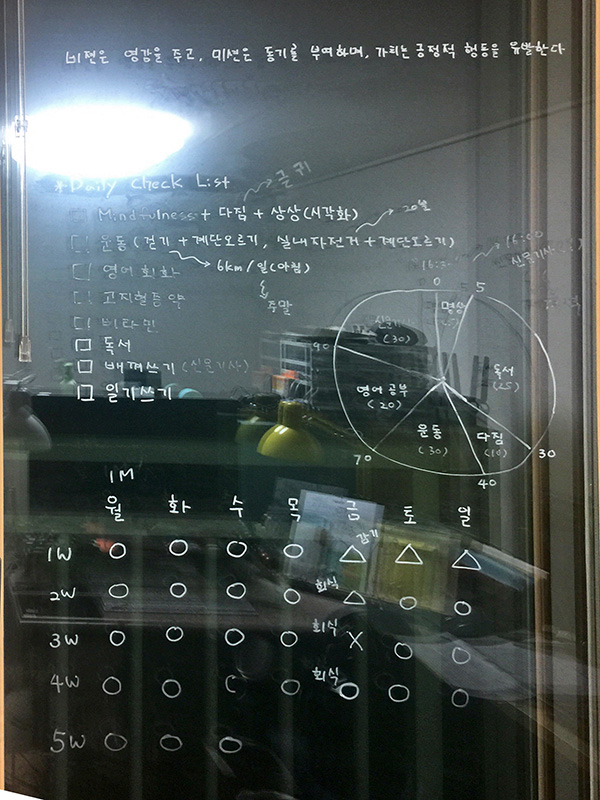 비젼은 영감을 주고, 미션은 동기를 부여하며, 가치는 긍정적 행동을 유발한다
*Daily Check List
글귀
□ Mindfulness + 다짐 + 상상(시각화)
20분
□ 운동 (걷기 + 계단오르기, 실내자전거 + 계단오르기)
6km/일(아침)
주말
□ 영어회화
□ 고지혈증약
□ 비타민
□ 독서
□ 베껴쓰기 (신문기사)
□ 일기쓰기
16:00
신문기사
0 5
명상
(5)
신문기사
(30)
90
독서
(25)
영어공부
(20)
운동
(30)
다짐
(10)
30
70
40
1M
월 화 수 목 금 토 일
감기
1W ○ ○ ○ ○ △ △ △
회식
2W ○ ○ ○ ○ △ ○ ○
회식
3W ○ ○ ○ ○ X ○ ○
회식
4W ○ ○ ○ ○ ○ ○ ○
5W ○ ○ ○